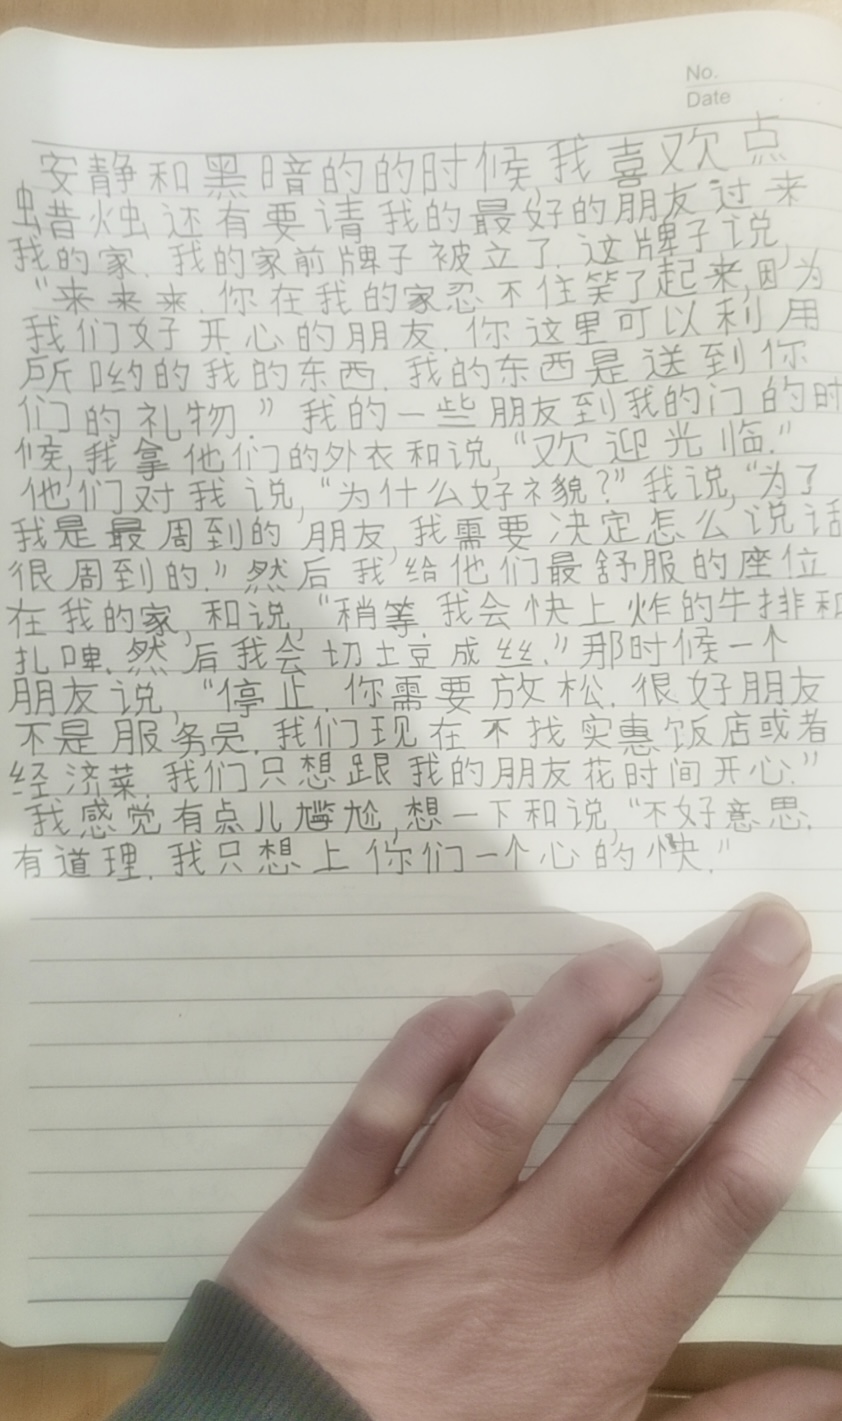 No.
Date
安静和黑暗的的时候,我喜欢点
蜡烛还有要请我的最好的朋友过来
我的家.我的家前牌子被立了.这牌子说,
"来来来.你在我的家忍不住笑了起来,因为
我们好开心的朋友.你这里可以利用
所哟的我的东西.我的东西是送到你
们的礼物."我的一些朋友到我的门的时
候,我拿他们的外衣和说,"欢迎光临."
他们对我说,"为什么好礻貌?"我说,"为了
我是最周到的朋友,我需要决定怎么说话
很周到的."然后我给他们最舒服的座位
在我的家,和说,"稍等.我会快上炸的牛排和
扎啤.然后我会切土豆成丝."那时候一个
朋友说,"停止.你需要放松.很好朋友
不是服务员.我们现在不找实惠饭店或者
经济菜.我们只想跟我的朋友花时间开心."
我感觉有点儿尴尬,想一下和说,"不好意思.
有道理.我只想上你们一个心的快."